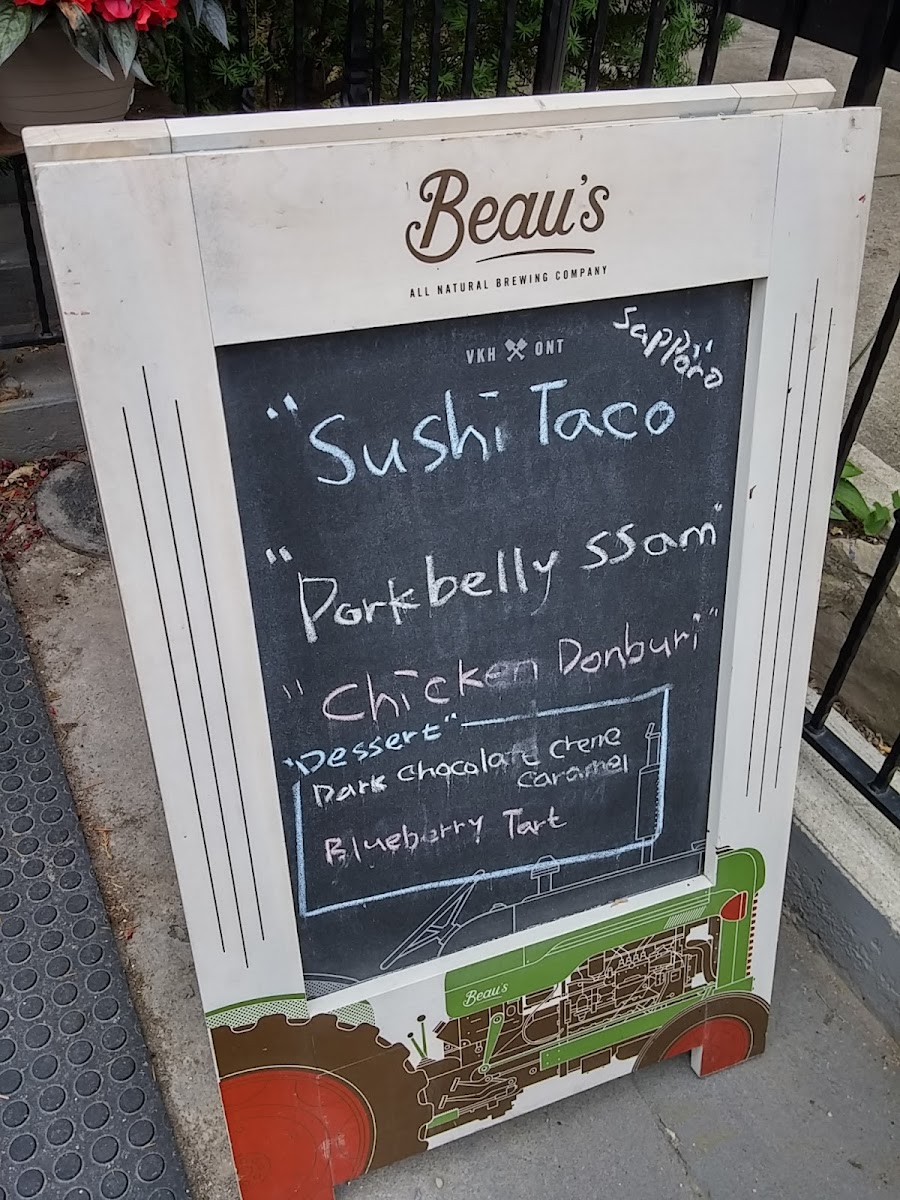 Beau's
ALL NATURAL BREWING COMPANY
VKH ONT
Sapporo
"Sushi Taco"
"Porkbelly ssam"
"Chicken Donburi"
"Dessert"
Dark chocolate creme
caramel
Blueberry Tart
Beau's